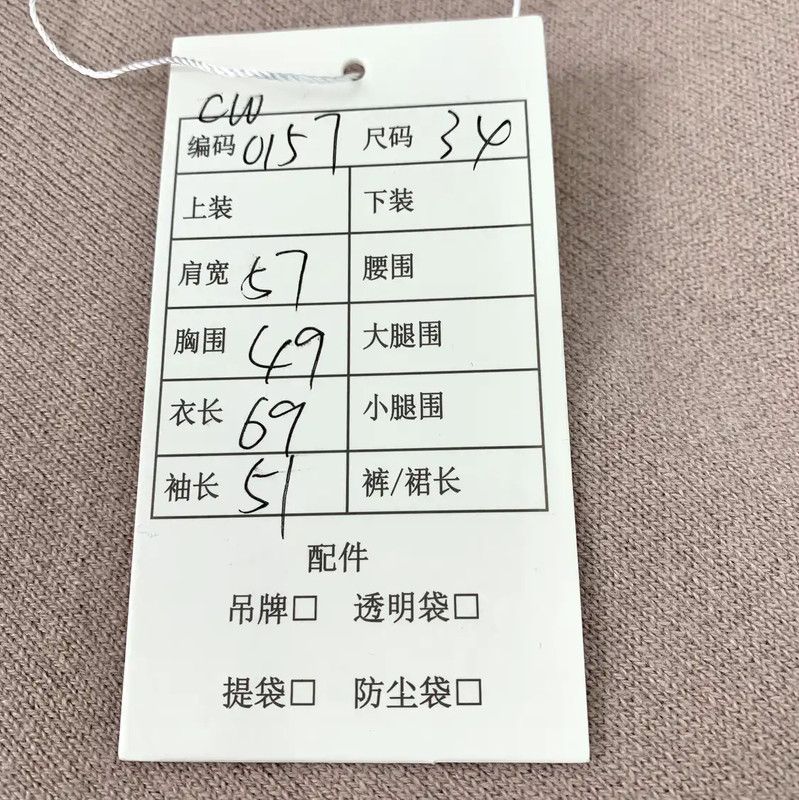 CW
编码 0157 尺码 34
上装 下装
肩宽 57 腰围
胸围 49 大腿围
衣长 69 小腿围
袖长 51 裤/裙长
配件
吊牌□ 透明袋□
提袋□ 防尘袋□